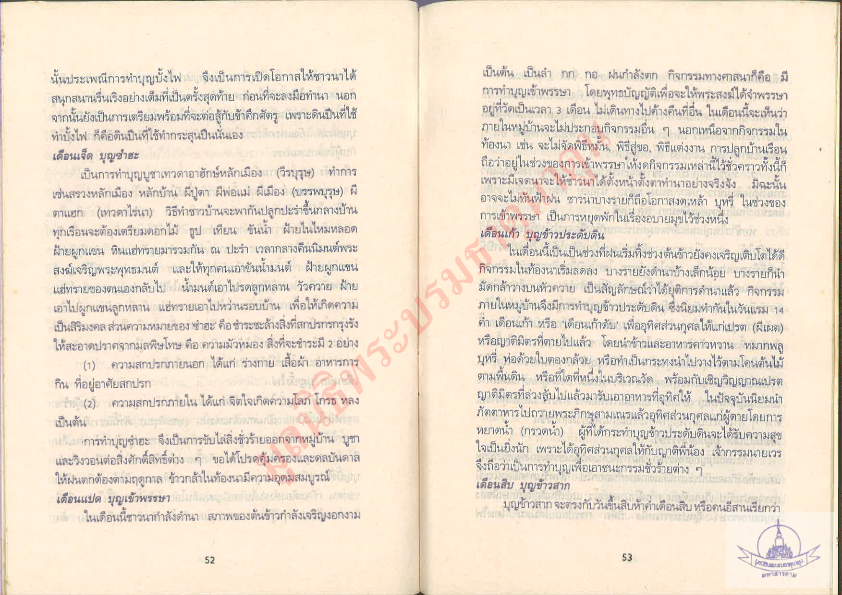 นั้นประเพณีการทำบุญบั้งไฟ จึงเป็นการเปิดโอกาสให้ชาวนาได้
สนุกสนานรื่นเริงอย่างเต็มที่เป็นครั้งสุดท้าย ก่อนที่จะลงมือทำนา นอก
จากนั้นยังเป็นการเตรียมพร้อมที่จะต่อสู้กับข้าศึกศัตรู เพราะดินปืนที่ใช้
ทำบั้งไฟ ก็คือดินปืนที่ใช้ทำกระสุนปืนนั่นเอง
เดือนเจ็ด บุญซำฮะ
เป็นการทำบุญบูชาเทวดาอาฮักษ์หลักเมือง (วีรบุรุษ) ทำการ
เซ่นสรวงหลักเมือง หลักบ้าน ผีปู่ตา ผีพ่อแม่ ผีเมือง (บรรพบุรุษ) ผี
ตาแฮก (เทวดาไร่นา) วิธีทำชาวบ้านจะพากันปลูกปะรำขึ้นกลางบ้าน
ทุกเรือนจะต้องเตรียมดอกไม้ ธูป เทียน ขันน้ำ ฝ้ายในไหมหลอด
ฝ้ายผูกแขน หินแฮ่ทรายมารวมกัน ณ ปะรำ เวลากลางคืนนิมนต์พระ
สงฆ์เจริญพระพุทธมนต์ และให้ทุกคนเอาขันน้ำมนต์ ฝ้ายผูกแขน
แฮ่ทรายของตนเองกลับไป น้ำมนต์เอาไปรดลูกหลาน วัวควาย ฝ้าย
เอาไปผูกแขนลูกหลาน แฮ่ทรายเอาไปหว่านรอบบ้าน เพื่อให้เกิดความ
เป็นสิริมงคล ส่วนความหมายของ ซำฮะ คือ ชำระชะล้างสิ่งที่สกปรกรุงรัง
ให้สะอาดปราศจากมุลพิษโทษ คือ ความมัวหมอง สิ่งที่จะชำระมี 2 อย่าง
(1) ความสกปรกภายนอก ได้แก่ ร่างกาย เสื้อผ้า อาหารการ
กิน ที่อยู่อาศัยสกปรก
(2) ความสกปรกภายใน ได้แก่ จิตใจเกิดความโลภ โกรธ หลง
เป็นต้น
การทำบุญซำฮะ จึงเป็นการขับไล่สิ่งชั่วร้ายออกจากหมู่บ้าน บูชา
และวิงวอนต่อสิ่งศักดิ์สิทธิ์ต่าง ๆ ขอได้โปรดคุ้มครองและดลบันดาล
ให้ฝนตกต้องตามฤดูกาล ข้าวกล้าในท้องนามีความอุดมสมบูรณ์
เดือนแปด บุญเข้าพรรษา
ในเดือนนี้ชาวนากำลังดำนา สภาพของต้นข้าวกำลังเจริญงอกงาม
52
เป็นต้น เป็นลำ กก กอ ฝนกำลังตก กิจกรรมทางศาสนาก็คือ มี
การทำบุญเข้าพรรษา โดยพุทธบัญญัติเพื่อจะให้พระสงฆ์ได้จำพรรษา
อยู่ที่วัดเป็นเวลา 3 เดือน ไม่เดินทางไปค้างคืนที่อื่น ในเดือนนี้จะเห็นว่า
ภายในหมู่บ้านจะไม่ประกอบกิจกรรมอื่น ๆ นอกเหนือจากกิจกรรมใน
ท้องนา เช่น จะไม่จัดพิธีหมั้น, พิธีสู่ขอ, พิธีแต่งงาน การปลูกบ้านเรือน
ถือว่าอยู่ในช่วงของการเข้าพรรษาให้งดกิจกรรมเหล่านี้ไว้ชั่วคราวทั้งนี้ก็
เพราะมีเจตนาจะให้ชาวนาได้ตั้งหน้าตั้งตาทำนาอย่างจริงจัง มิฉะนั้น
อาจจะไม่ทันฟ้าฝน ชาวนาบางรายก็ถือโอกาสงดเหล้า บุหรี่ ในช่วงของ
การเข้าพรรษา เป็นการหยุดพักในเรื่องอบายมุขไว้ช่วงหนึ่ง
เดือนเก้า บุญข้าวประดับดิน
ในเดือนนี้เป็นเป็นช่วงที่ฝนเริ่มทิ้งช่วงต้นข้าวยังคงเจริญเติบโตได้ดี
กิจกรรมในท้องนาเริ่มลดลง บางรายยังดำนาบ้างเล็กน้อย บางรายก็นำ
มัดกล้าวางบนหัวควาย เป็นสัญลักษณ์ว่าได้ยุติการดำนาแล้ว กิจกรรม
ภายในหมู่บ้านจึงมีการทำบุญข้าวประดับดิน ซึ่งนิยมทำกันในวันแรม 14
ค่ำ เดือนเก้า หรือ "เดือนเก้าดับ" เพื่ออุทิศส่วนกุศลให้แก่เปรต (ผีเผต)
หรือญาติมิตรที่ตายไปแล้ว โดยนำข้าวและอาหารคาวหวาน หมากพลู
บุหรี่ ห่อด้วยใบตองกล้วย หรือทำเป็นกระทงนำไปวางไว้ตามโคนต้นไม้
ตามพื้นดิน หรือที่ใดที่หนึ่งในบริเวณวัด พร้อมกับเชิญวิญญาณเปรต
ญาติมิตรที่ล่วงลับไปแล้วมารับเอาอาหารที่อุทิศให้ ในปัจจุบันนิยมนำ
ภัตตาหารไปถวายพระภิกษุสามเณรแล้วอุทิศส่วนกุศลแก่ผู้ตายโดยการ
หยาดน้ำ (กรวดน้ำ) ผู้ที่ได้กระทำบุญข้าวประดับดินจะได้รับความสุข
ใจเป็นยิ่งนัก เพราะได้อุทิศส่วนกุศลให้กับญาติพี่น้อง เจ้ากรรมนายเวร
จึงถือว่าเป็นการทำบุญเพื่อเอาชนะกรรมชั่วร้ายต่าง ๆ
เดือนสิบ บุญข้าวสาก
บุญข้าวสาก จะตรงกับวันขึ้นสิบห้าค่ำเดือนสิบ หรือคนอีสานเรียกว่า
53
มหาสารคาม